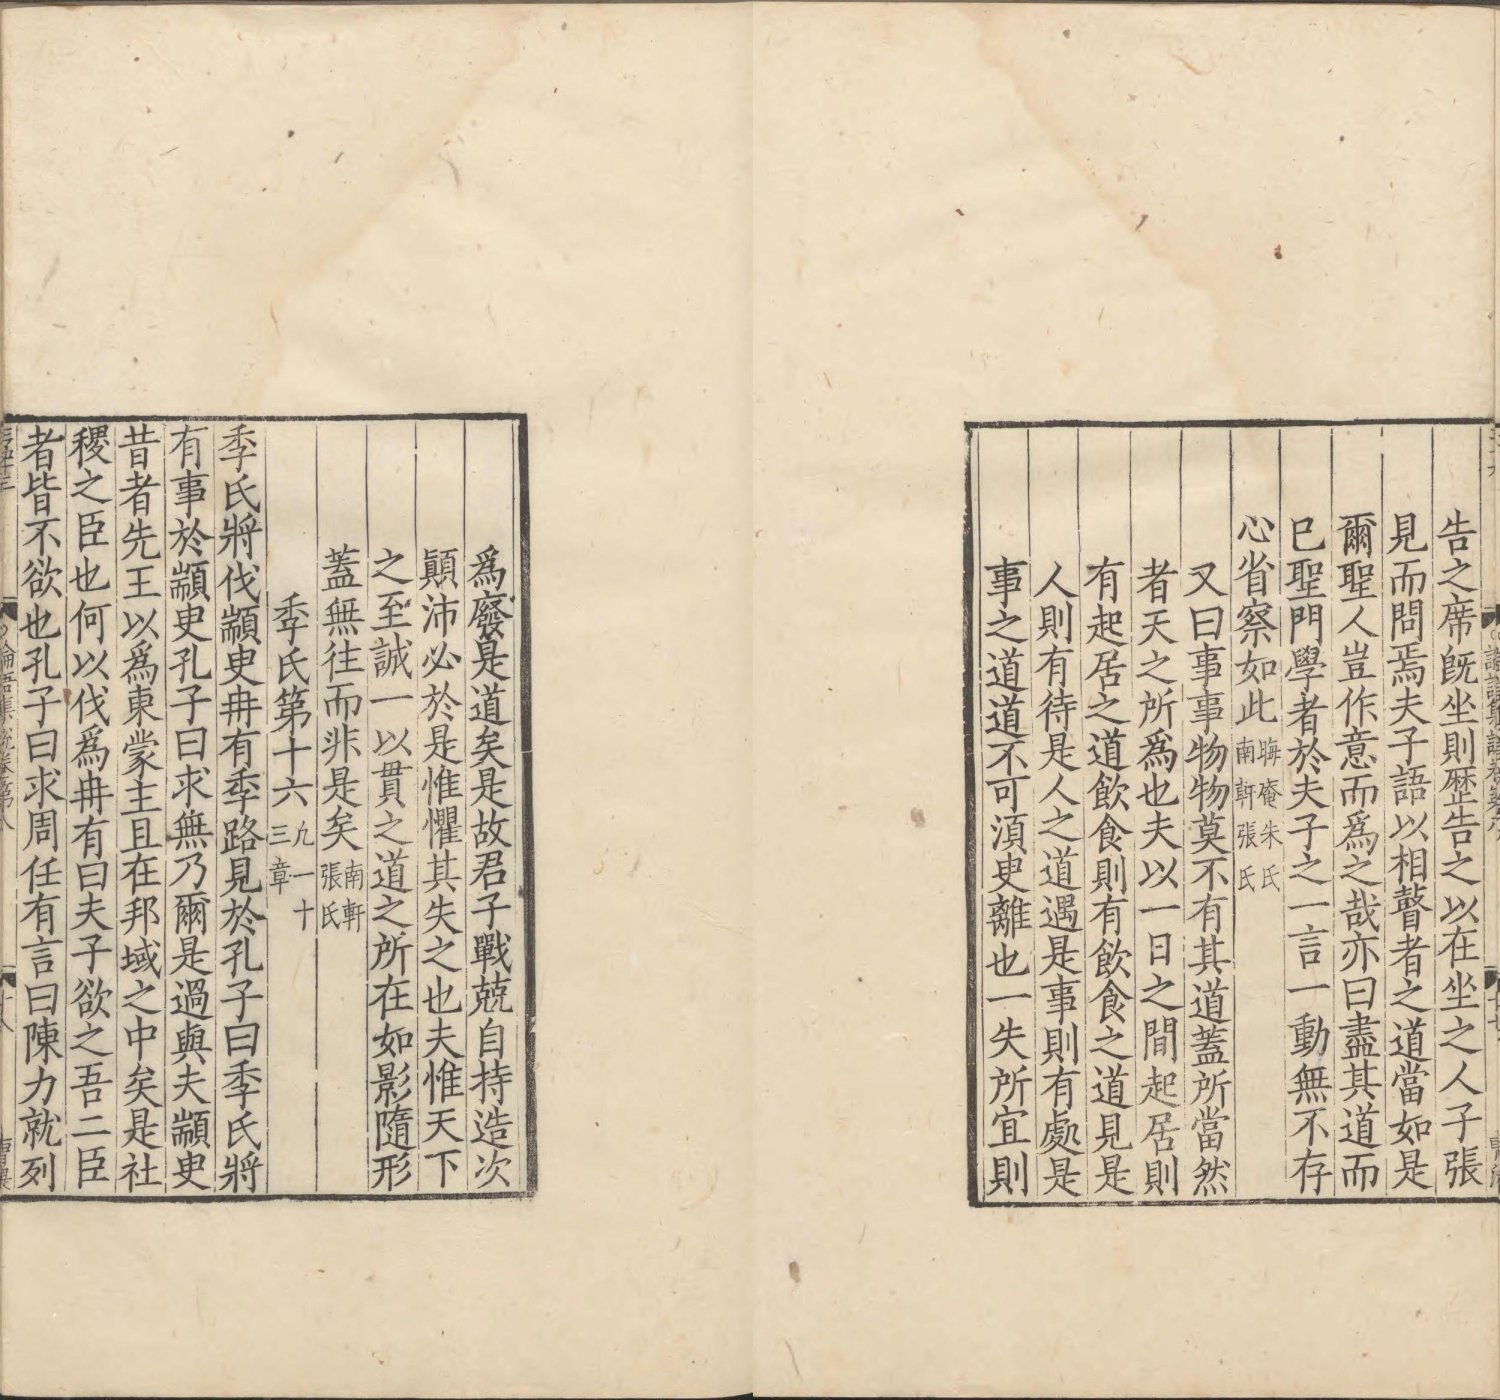 告之席旣坐則歷告之以在坐之人子張
見而問焉夫子語以相瞽者之道當如是
爾聖人豈作意而爲之哉亦曰盡其道而
已聖門學者於夫子之一言一動無不存
心省察如此晦庵朱氏南軒張氏
又曰事事物物莫不有其道蓋所當然
者天之所爲也夫以一日之間起居則
有起居之道飲食則有飲食之道見是
人則有待是人之道遇是事則有處是
事之道道不可須臾離也一失所宜則
爲廢是道矣是故君子戰兢自持造次
顚沛必於是惟懼其失之也夫惟天下
之至誠一以貫之道之所在如影隨形
蓋無往而非是矣南軒張氏
季氏第十六凡一十三章
季氏將伐顓臾冉有季路見於孔子曰季氏將
有事於顓臾孔子曰求無乃爾是過與夫顓臾
昔者先王以爲東蒙主且在邦域之中矣是社
稷之臣也何以伐爲冉有曰夫子欲之吾二臣
者皆不欲也孔子曰求周任有言曰陳力就列